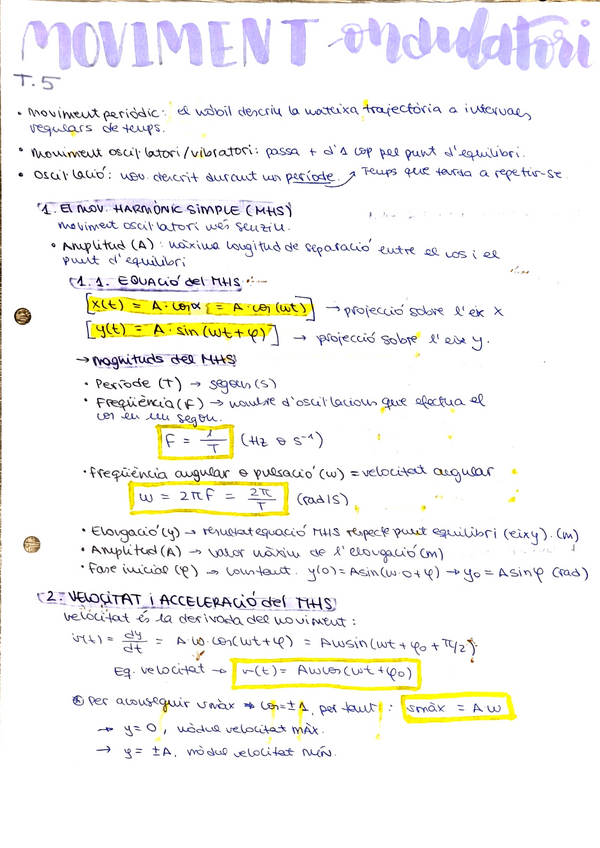 MOVIMENT ondulatori
T.5
• Moviment periòdic: el mòbil descriu la mateixa trajectòria a intervals
regulars de temps.
• Moviment oscil·latori/vibratori: passa + d'1 cop pel punt d'equilibri.
• Oscil·lació: mov. descrit durant un període. → Temps que tarda a repetir-se.
1. El mov. HARMÒNIC SIMPLE (MHS)
moviment oscil·latori més senzill.
• Amplitud (A): màxima longitud de separació entre el cos i el
punt d'equilibri
1.1. EQUACIÓ del MHS
x(t) = A · cosα = A · cos (wt) → projecció sobre l'eix x
y(t) = A · sin (wt + φ) → projecció sobre l'eix y.
→ Magnituds del MHS
• Període (T) → segons (s)
• Freqüència (F) → nombre d'oscil·lacions que efectua el
cos en un segon.
F = 1/T (Hz o s⁻¹)
• Freqüència angular o pulsació (w) = velocitat angular
w = 2πF = 2π/T (rad/s)
• Elongació (y) → resultat equació MHS respecte punt equilibri (eix y). (m)
• Amplitud (A) → valor màxim de l'elongació (m)
• Fase inicial (φ) → constant. y(0) = Asin(w·0+φ) → y₀ = Asinφ (rad)
2. VELOCITAT i ACCELERACIÓ del MHS
velocitat és la derivada del moviment:
v(t) = dy/dt = A·w·cos(wt+φ) = Awsin(wt + φ₀ + π/2)
Eq. velocitat → v(t) = Awcos(wt+φ₀)
* Per aconseguir vmàx → cos=±1, per tant: vmàx = Aw
→ y=0, mòdul velocitat màx.
→ y = ±A, mòdul velocitat mín.